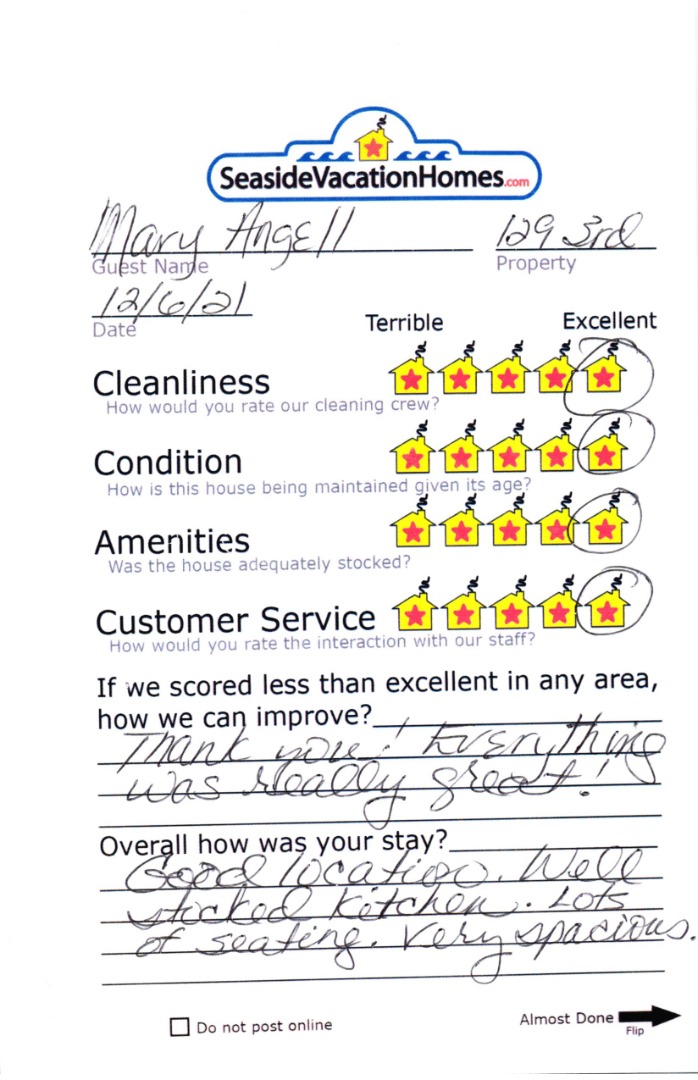 SeasideVacationHomes.com
Mary Angell 129 3rd
Guest Name Property
12/6/21
Date
Terrible Excellent
Cleanliness
How would you rate our cleaning crew?
Condition
How is this house being maintained given its age?
Amenities
Was the house adequately stocked?
Customer Service
How would you rate the interaction with our staff?
If we scored less than excellent in any area,
how we can improve?
Thank you! Everything
was really great!
Overall how was your stay?
Good location. Well
stocked kitchen. Lots
of seating. Very spacious.
Do not post online
Almost Done
Flip